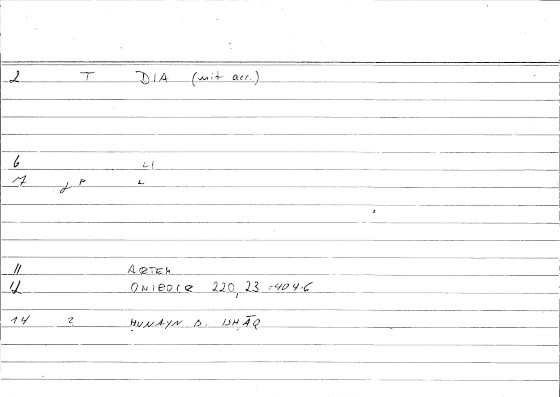 2 T DIA (mit acc.)
6 LI
7 P L
11 ARTEM
12 ONIROCR 220,23 =404-6
14 2 ḤUNAYN B. ISḤĀQ